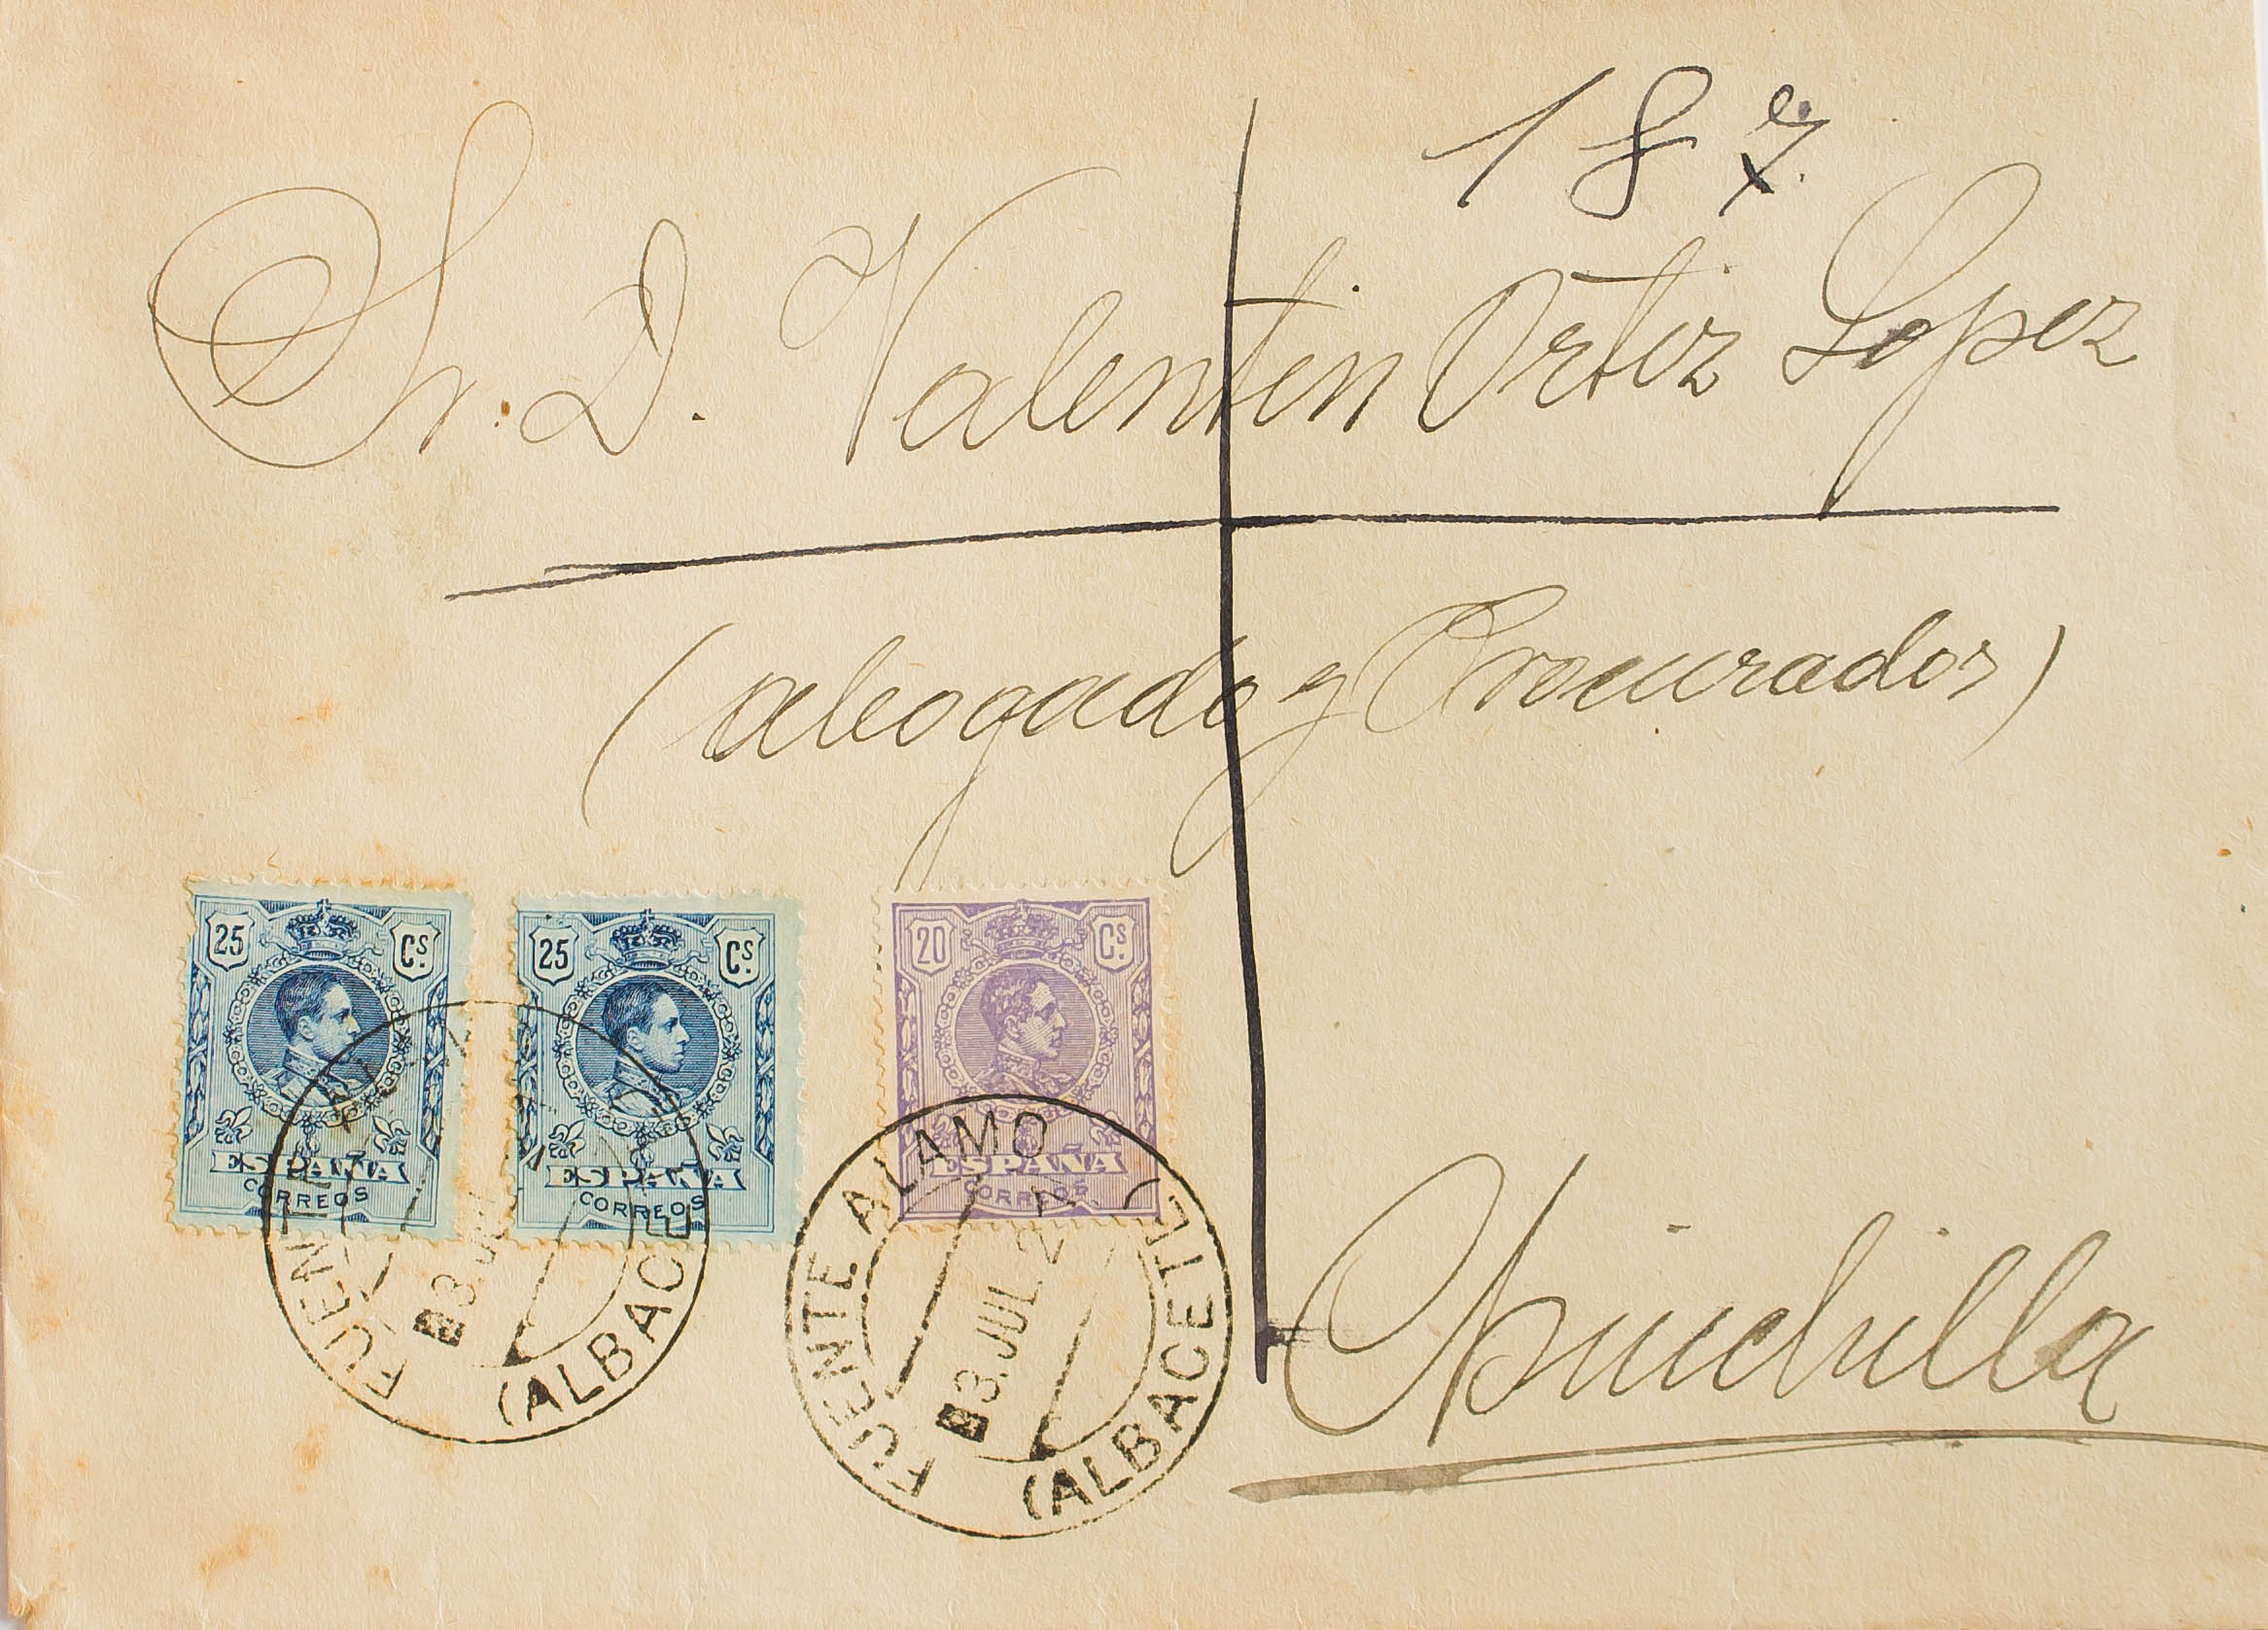 187
Sr. D. Valentin Ortiz Lopez
(abogado y Procurador)
25 Cs.
ESPAÑA
CORREOS
25 Cs.
ESPAÑA
CORREOS
20 Cs.
ESPAÑA
CORREOS
FUEN
3 JU
(ALBACE
FUENTE ALAMO
3 JUL 2
(ALBACETE)
Chinchilla